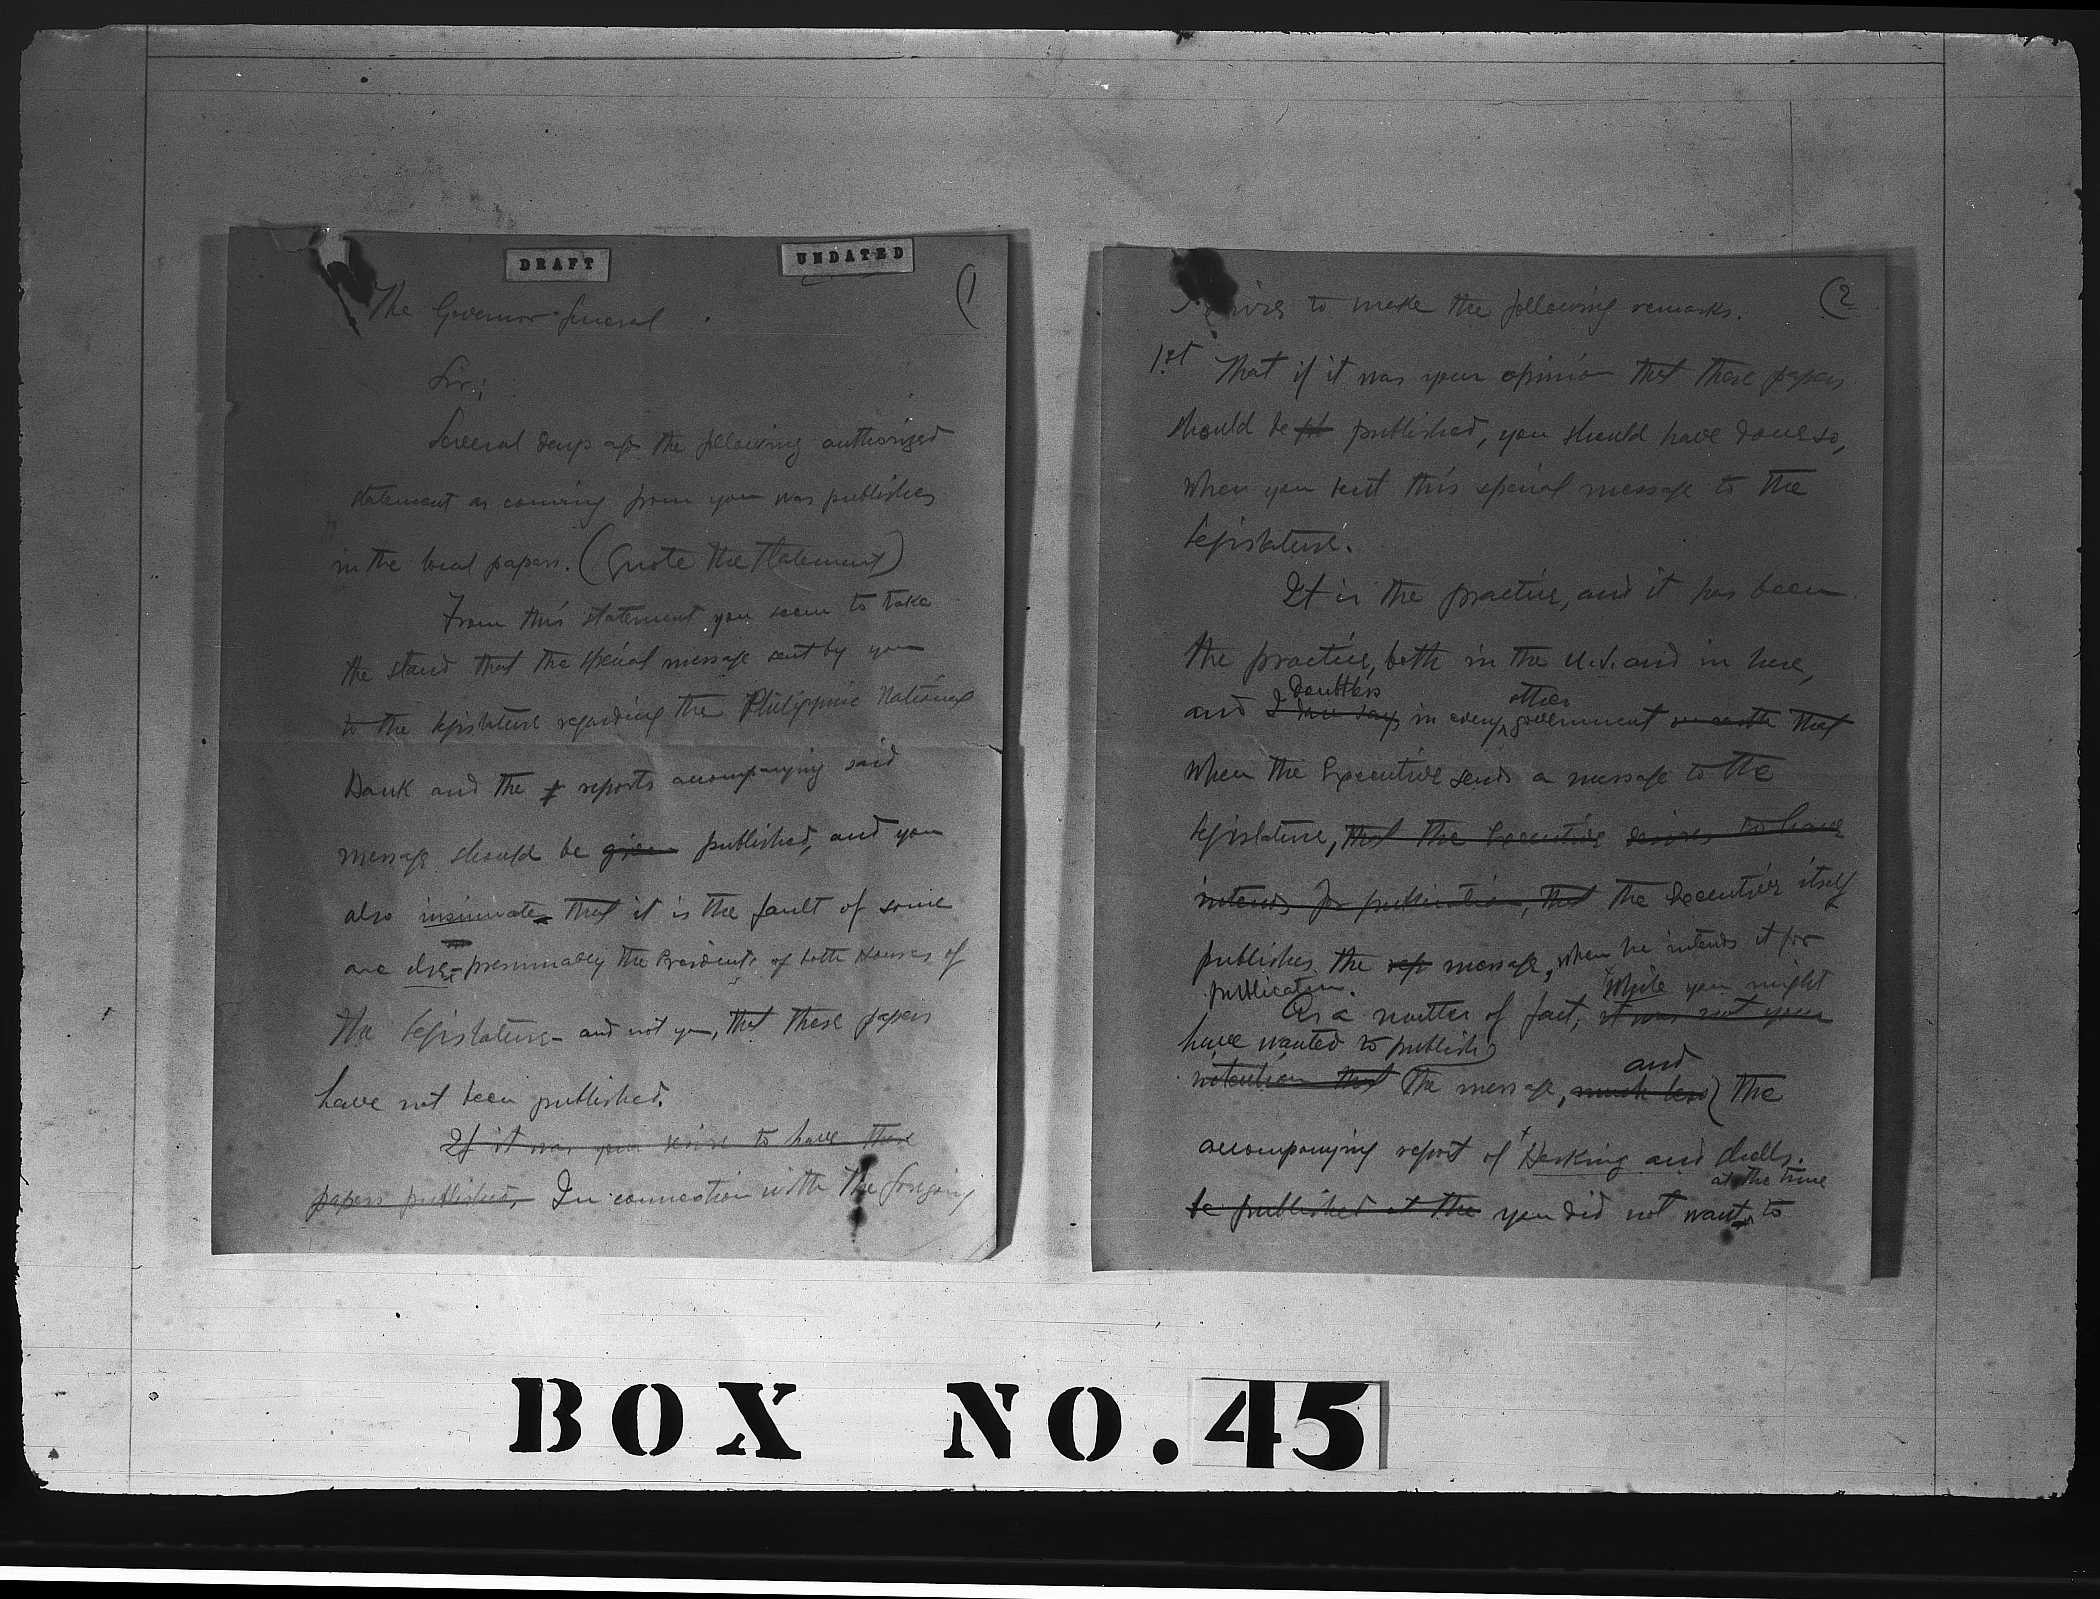 DRAFT
UNDATED
(1
The Governor-General
Sir;
Several days ago the following authorized
statement as coming from you was published
in the local papers. (Quote the statement)
From this statement you seem to take
the stand that the special message sent by you
to the legislature regarding the Philippine National
Bank and the reports accompanying said
message should be given published, and you
also insinuate that it is the fault of some
one else - presumably the Presidents of both Houses of
the legislature - and not you, that these papers
have not been published.
If it was your desire to have these
papers published, In connection with the foregoing
(2
I desire to make the following remarks.
1st That if it was your opinion that these papers
should be published, you should have done so,
when you sent this special message to the
legislature.
It is the practice, and it has been
the practice, both in the U.S. and in here,
doubtless other
and I dare say in every government on earth that
when the Executive sends a message to the
legislature, that the Executive desires to have
intends for publication, that the Executive itself
publishes the rep message, when he intends it for
publication. While you might
As a matter of fact, it was not your
have wanted to publish
intention that the message, much less) the
and
accompanying report of Haskins and Sells.
at the time
be published at the you did not want to
BOX NO. 45